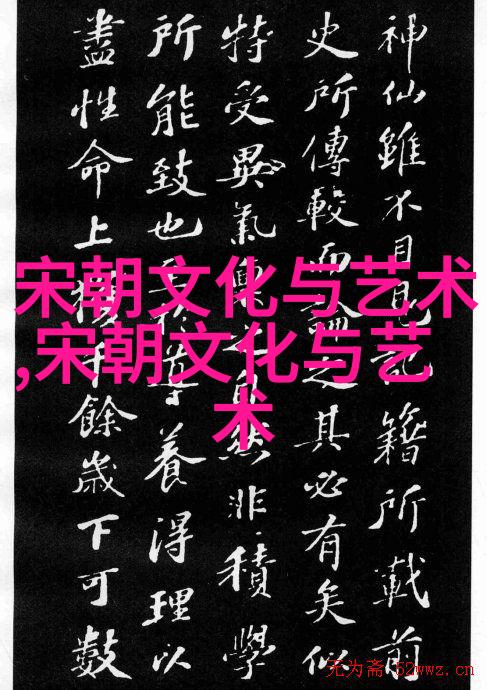 神仙雖不目見記籍所載前
史所傳較而論之其必有矣似
特受異氣稟之自然非積學
所能致也至於導養得理以
盡性命上獲千餘歲下可數
宋朝文化与艺术
,宋朝文化与艺
术
无为斋 52wwz.cn